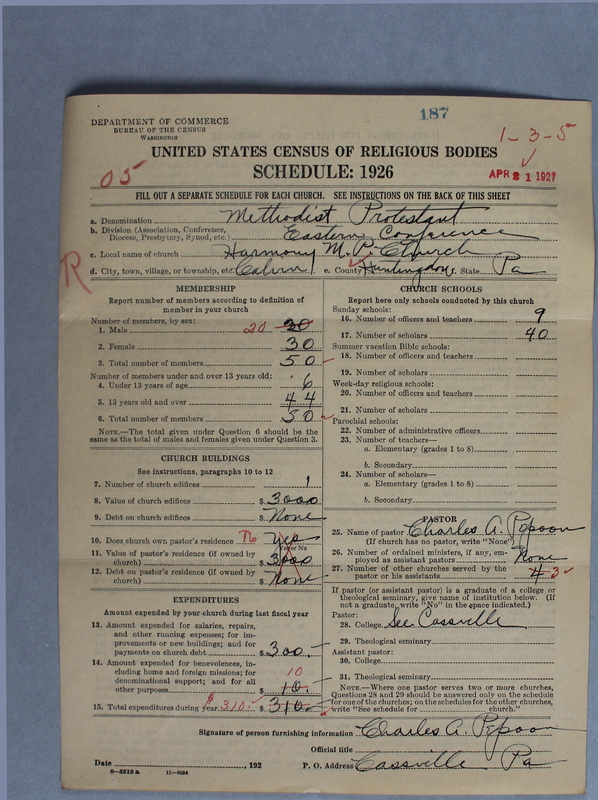 187
DEPARTMENT OF COMMERCE
BUREAU OF THE CENSUS
WASHINGTON
1-3-5
UNITED STATES CENSUS OF RELIGIOUS BODIES
SCHEDULE: 1926
APR 21 1927
05
FILL OUT A SEPARATE SCHEDULE FOR EACH CHURCH. SEE INSTRUCTIONS ON THE BACK OF THIS SHEET
a. Denomination Methodist Protestant
b. Division (Association, Conference, Diocese, Presbytery, Synod, etc.) Eastern Conference
c. Local name of church Harmony M. P. Church
R
d. City, town, village, or township, etc. Calvin e. County Huntingdon f. State Pa
MEMBERSHIP
Report number of members according to definition of
member in your church
Number of members, by sex:
1. Male 20 20
2. Female 30
3. Total number of members 50
Number of members under and over 13 years old:
4. Under 13 years of age 6
5. 13 years old and over 44
6. Total number of members 50
NOTE.—The total given under Question 6 should be the
same as the total of males and females given under Question 3.
CHURCH BUILDINGS
See instructions, paragraphs 10 to 12
7. Number of church edifices 1
8. Value of church edifices $ 3000
9. Debt on church edifices $ None
10. Does church own pastor's residence No Yes
Yes or No
11. Value of pastor's residence (if owned by
church) $ 3000
12. Debt on pastor's residence (if owned by
church) $ None
EXPENDITURES
Amount expended by your church during last fiscal year
13. Amount expended for salaries, repairs,
and other running expenses; for im-
provements or new buildings; and for
payments on church debt $ 300.-
14. Amount expended for benevolences, in-
cluding home and foreign missions; for
denominational support; and for all
other purposes 10 $ 10.-
15. Total expenditures during year $ 310.- $ 310.-
CHURCH SCHOOLS
Report here only schools conducted by this church
Sunday schools:
16. Number of officers and teachers 9
17. Number of scholars 40
Summer vacation Bible schools:
18. Number of officers and teachers
19. Number of scholars
Week-day religious schools:
20. Number of officers and teachers
21. Number of scholars
Parochial schools:
22. Number of administrative officers
23. Number of teachers—
a. Elementary (grades 1 to 8)
b. Secondary
24. Number of scholars—
a. Elementary (grades 1 to 8)
b. Secondary
PASTOR
25. Name of pastor Charles A. Pepoon
(If church has no pastor, write "None")
26. Number of ordained ministers, if any, em-
ployed as assistant pastors None
27. Number of other churches served by the
pastor or his assistants 4 3
If pastor (or assistant pastor) is a graduate of a college or
theological seminary, give name of institution below. (If
not a graduate, write "No" in the space indicated.)
Pastor:
28. College See Cassville
29. Theological seminary
Assistant pastor:
30. College
31. Theological seminary
NOTE.—Where one pastor serves two or more churches,
Questions 28 and 29 should be answered only on the schedule
for one of the churches; on the schedules for the other churches,
write "See schedule for church."
Signature of person furnishing information Charles A. Pepoon
Official title
Date , 192
P. O. Address Cassville Pa
8-5518a 11-9354